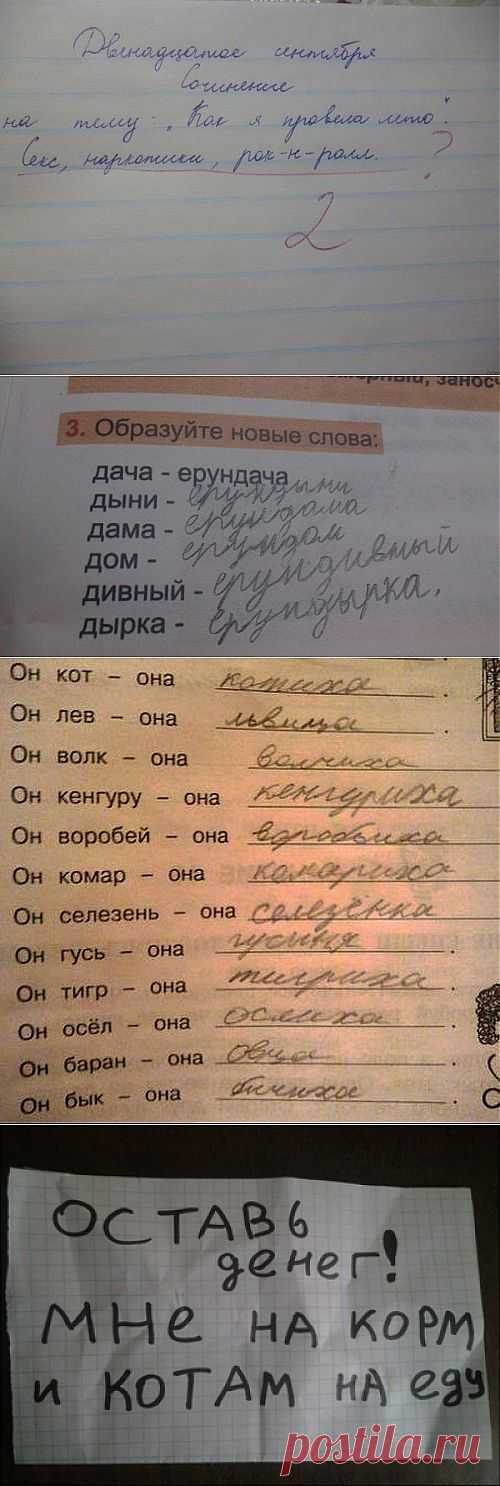 Двенадцатое сентября
Сочинение
на тему: „Как я провела лето".
Секс, наркотики, рок-н-ролл. ?
2
заносч
3. Образуйте новые слова:
дача - ерундача
дыни - ерундыни
дама - ерундама
дом - ерундом
дивный - ерундивный
дырка - ерундырка.
Он кот – она котиха.
Он лев – она львица.
Он волк – она волчиха
Он кенгуру – она кенгуриха
Он воробей – она воробьиха
Он комар – она комариха
Он селезень – она селезёнка
Он гусь – она гусыня.
Он тигр – она тигриха.
Он осёл – она ослиха.
Он баран – она овца.
Он бык – она бычиха.
ОСТАВЬ
денег!
мне на корм
и котам на еду
postila.ru